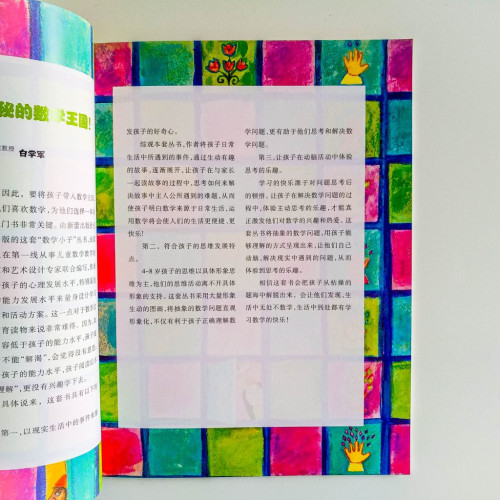 秘的数学王国!
教授 白学军
因此,要将孩子带入数学王
们喜欢数学,为他们选择一
门书非常关键。由新蕾出
版的这套“数学小子”丛书,
在第一线从事儿童数学教
和艺术设计专家联合编写,
孩子的心理发展水平,特别是
能力发展水平来量身设计
和活动方案。这一点对于数学
育读物来说非常难得。因为,
容低于孩子的能力水平,孩子
不能“解渴”,会觉得没有意
孩子的能力水平,孩子阅读
理解”,更没有兴趣学下去。
具体说来,这套书具有以下
第一,以现实生活中的事件来
发孩子的好奇心。
综观本套丛书,作者将孩子日常
生活中所遇到的事件,通过生动有趣
的故事,逐渐展开,让孩子在与家长
一起读故事的过程中,思考如何来解
决故事中主人公所遇到的难题,从而
使孩子明白数学来源于日常生活,运
用数学将会使人们的生活更便捷、更
快乐!
第二,符合孩子的思维发展特
点。
4-8岁孩子的思维以具体形象思
维为主,他们的思维活动离不开具体
形象的支持。这套丛书采用大量形象
生动的图画,将抽象的数学问题直观
形象化,不仅有利于孩子正确理解数
学问题,更有助于他们思考和解决数
学问题。
第三,让孩子在动脑活动中体验
思考的乐趣。
学习的快乐源于对问题思考后
的顿悟,让孩子在解决数学问题的过
程中,体验主动思考的乐趣,才能真
正激发他们对数学的兴趣和热爱。这
套丛书将抽象的数学问题,用孩子能
够理解的方式呈现出来,让他们自己
动脑,解决现实中遇到的问题,从而
体验到思考的乐趣。
相信这套书会把孩子从枯燥的
题海中解脱出来,会让他们发现,生
活中无处不数学,生活中到处都有学
习数学的快乐!